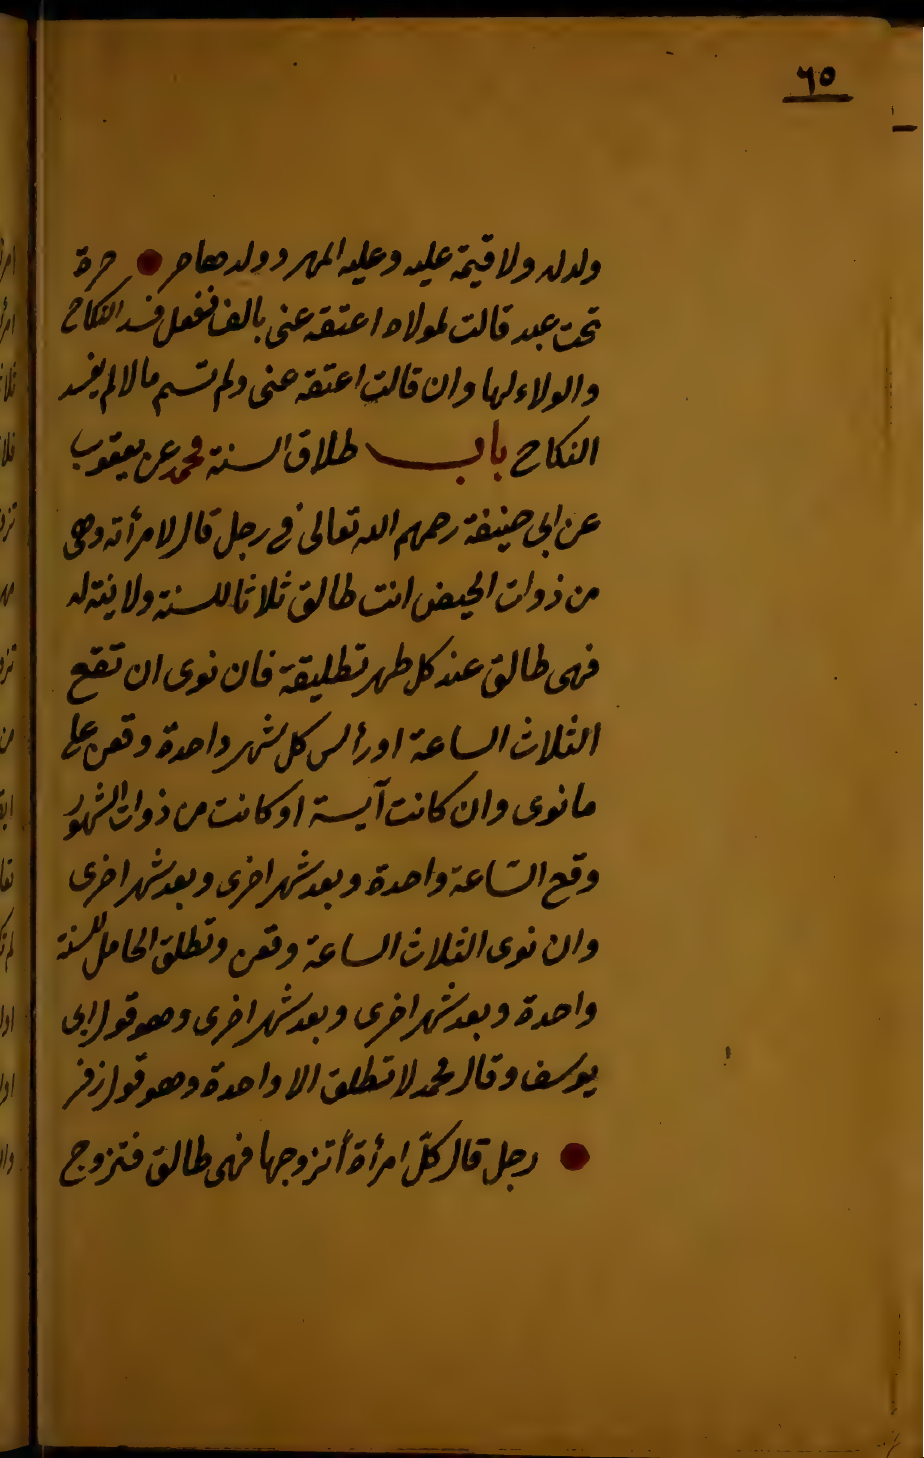 ٦٥
ولد له ولا قيمة عليه وعليه المهر وولدها حر حرة
تحت عبد قالت لمولاه اعتقه عنى بالف ففعل فسد النكاح
والولاء لها وان قالت اعتقه عنى ولم تسم مالا لم يفسد
النكاح باب طلاق السنة محمد عن يعقوب
عن ابى حنيفة رحمهم الله تعالى فى رجل قال لامرأته وهى
من ذوات الحيض انت طالق ثلاثا للسنة ولا نية له
فهى طالق عند كل طهر تطليقة فان نوى ان تقع
الثلاث الساعة او رأس كل شهر واحدة وقعن على
ما نوى وان كانت آيسة او كانت من ذوات الشهور
وقع الساعة واحدة وبعد شهر اخرى وبعد شهر اخرى
وان نوى الثلاث الساعة وقعن وتطلق الحامل للسنة
واحدة وبعد شهر اخرى وبعد شهر اخرى وهو قول ابى
يوسف وقال محمد لا تطلق الا واحدة وهو قول زفر
رجل قال كلّ امرأة أتزوجها فهى طالق فتزوج